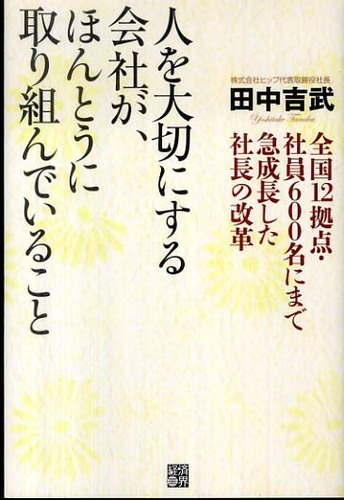 人を大切にする
会社が、
ほんとうに
取り組んでいること
株式会社ヒップ代表取締役社長
田中吉武
Yoshitake Tanaka
全国12拠点・
社員600名にまで
急成長した
社長の改革
経済界